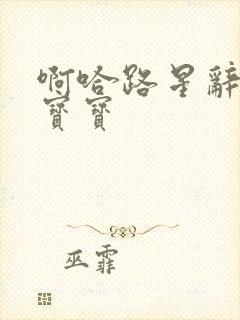 啊哈路星辭
寶寶
巫霏